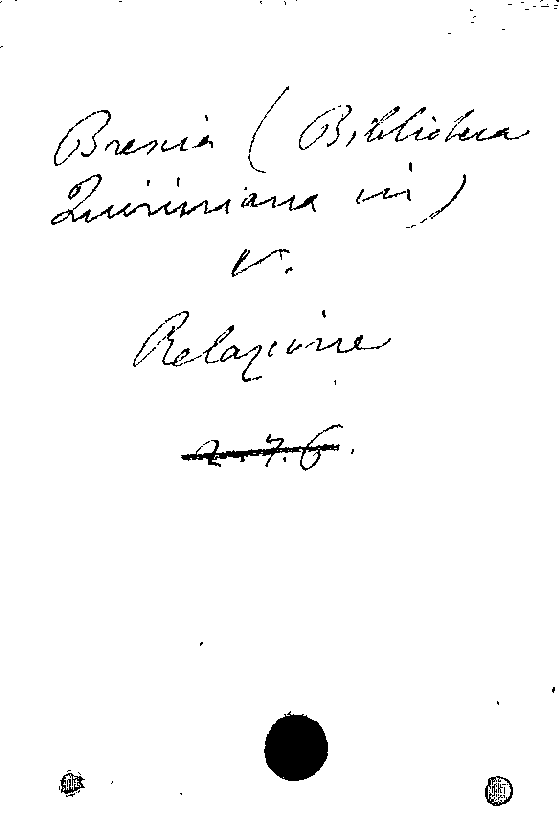 Brescia (Biblioteca
Quiriniana in)
V.
Relazione
2.7.6.